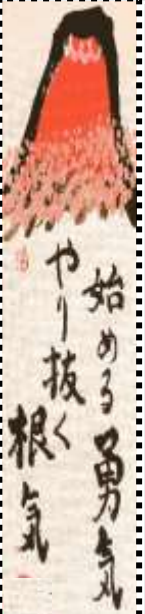 始める勇気
やり抜く
根気